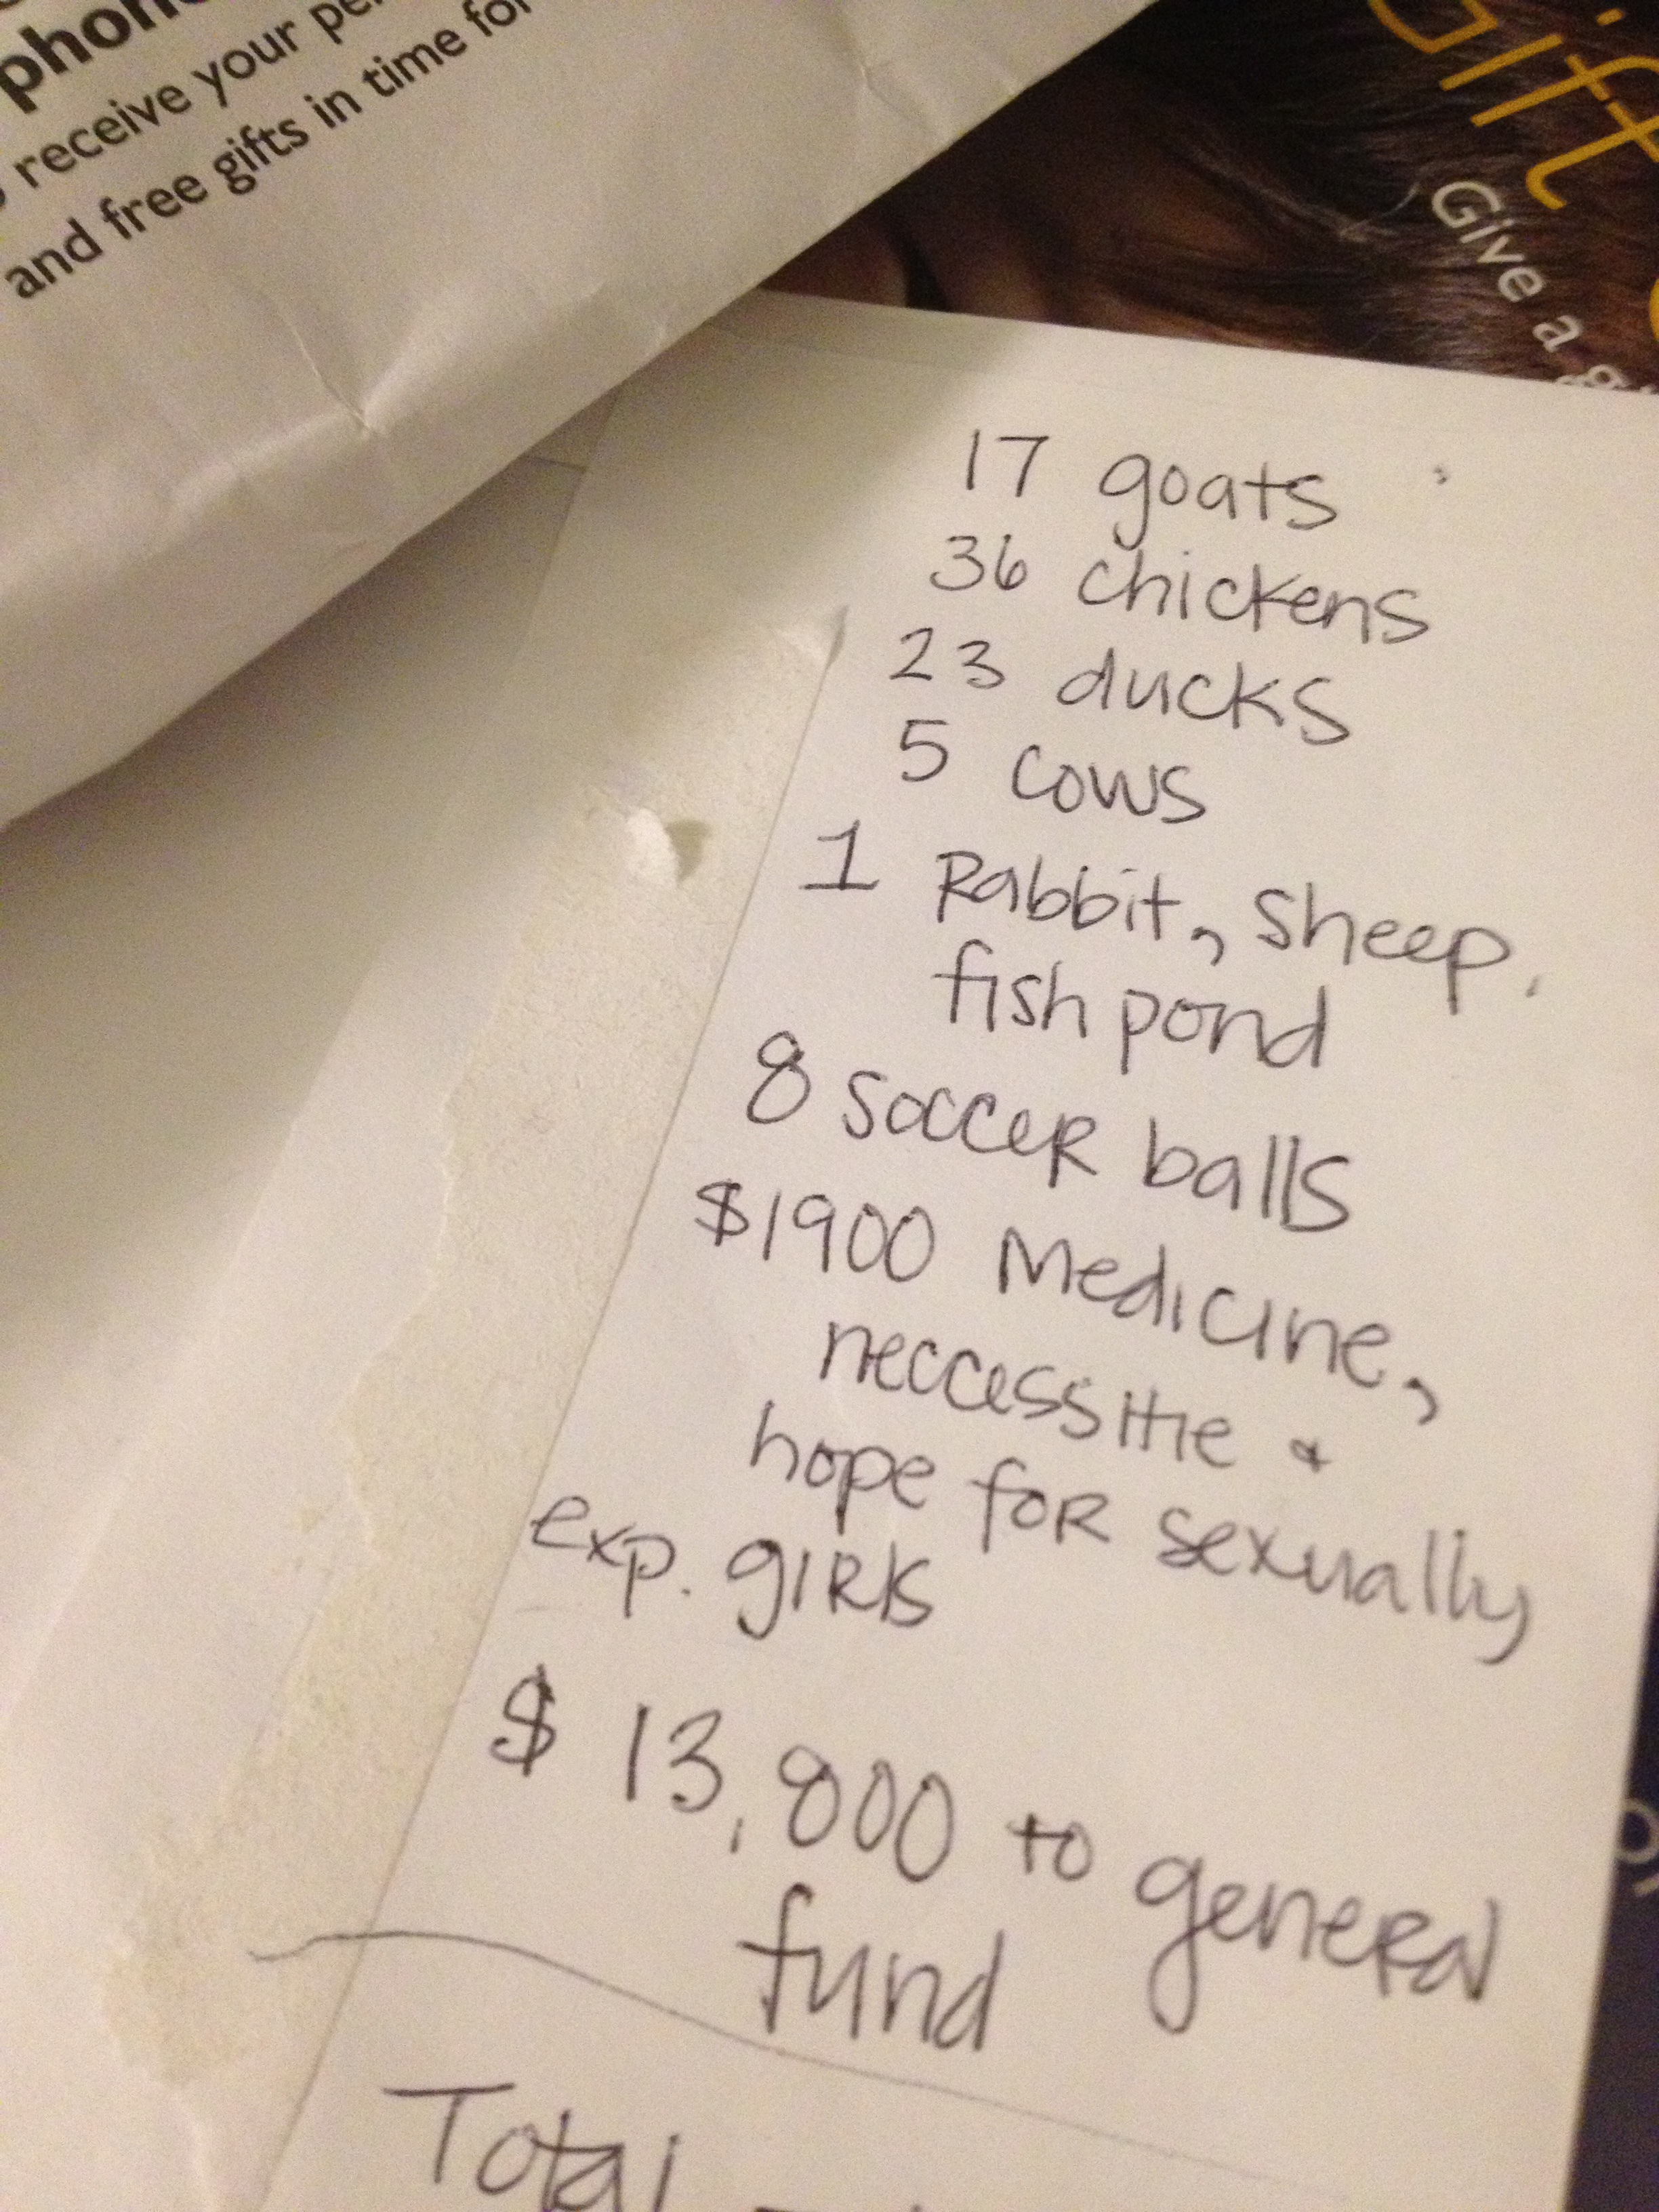 phon
receive your pe
and free gifts in time for
Gift
Give a
17 goats
36 chickens
23 ducks
5 cows
1 Rabbit, Sheep,
fish pond
8 Soccer balls
$1900 Medicine,
neccessitie &
hope for sexually
exp. girls
$ 13,800 to general
fund
Total